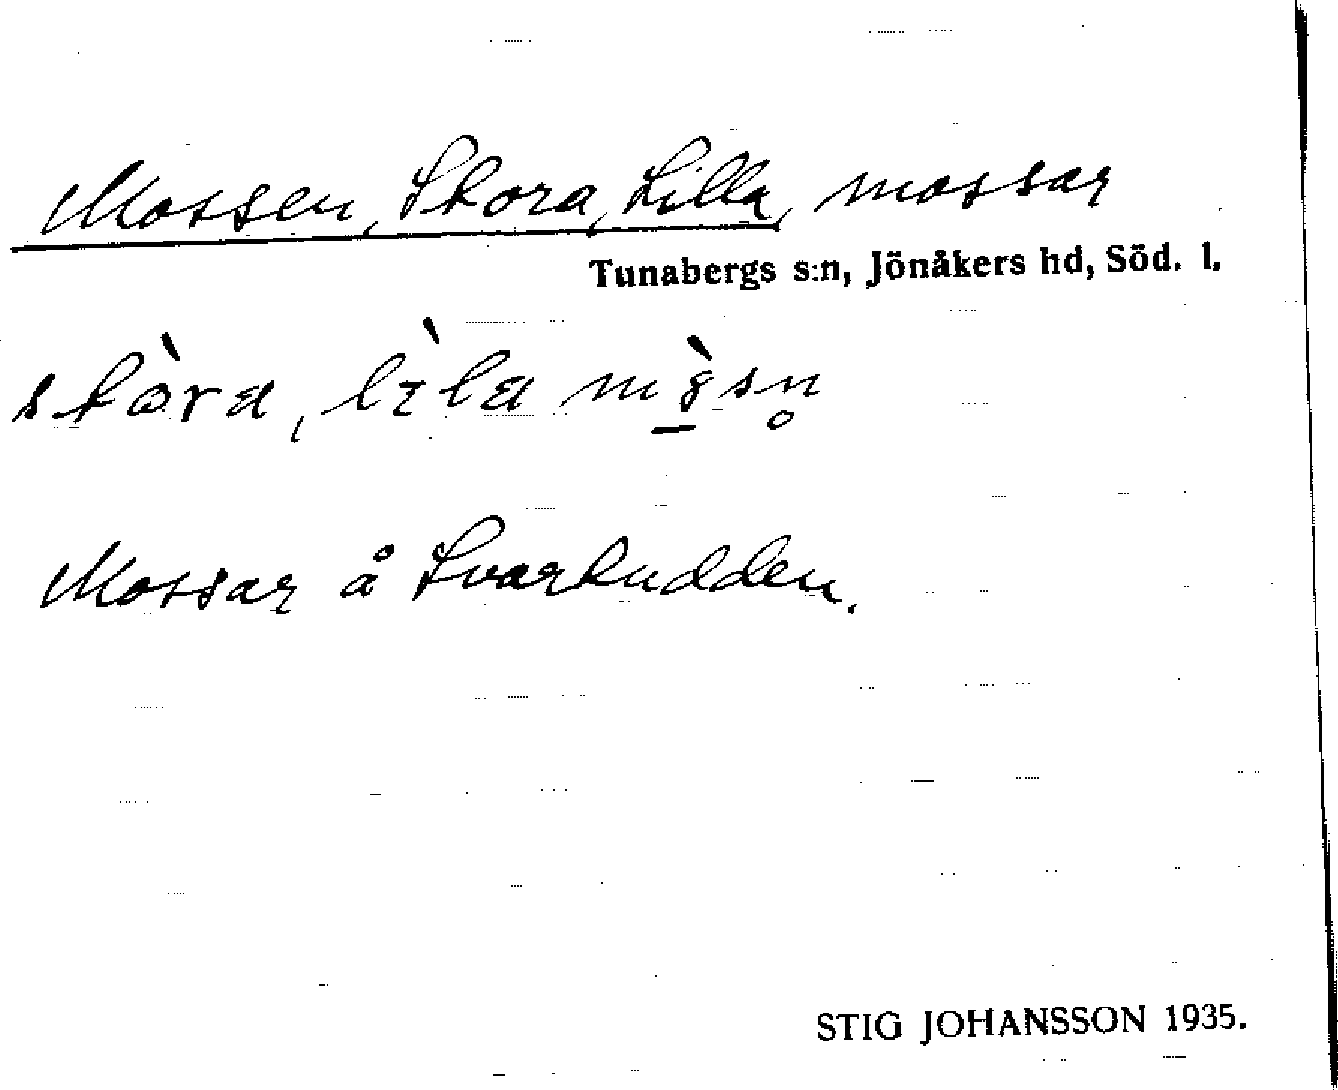 Mossen, Stora, Lilla, mossar
Tunabergs s:n, Jönåkers hd, Söd. l.
Mossar å Svarkudden.
STIG JOHANSSON 1935.